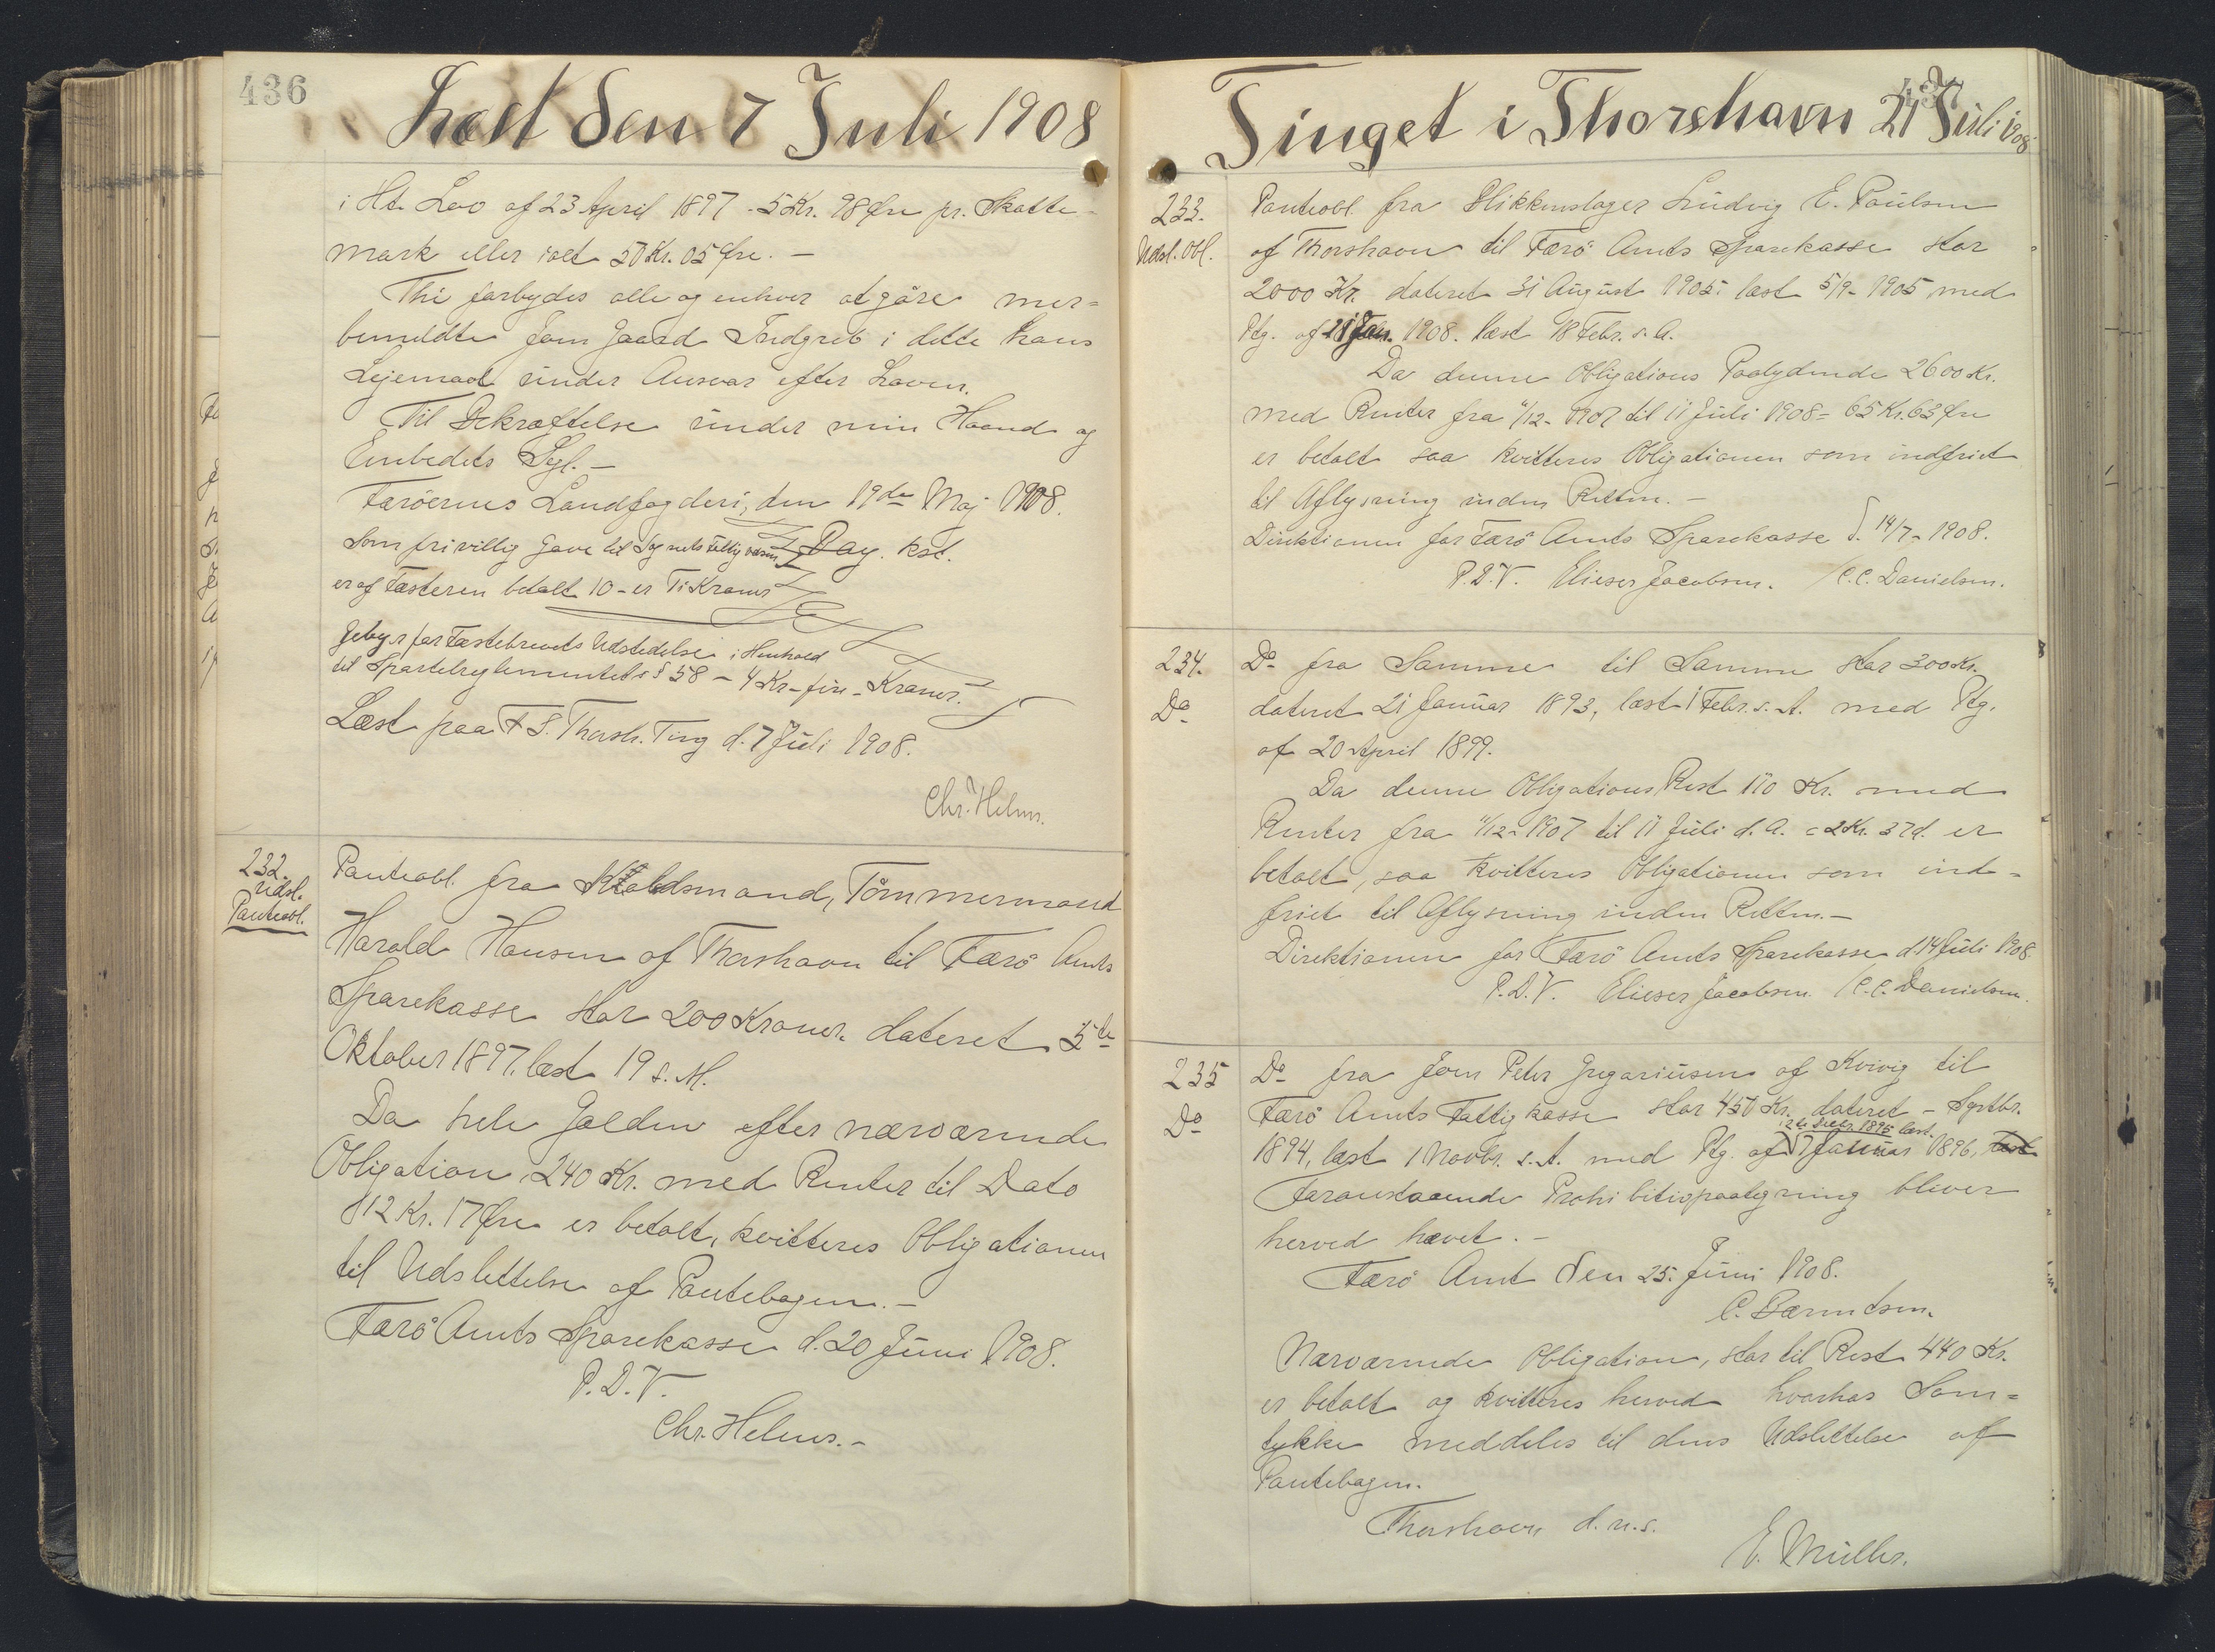 436
Læst den 7 Juli 1908
i Ht. Lov af 23 April 1897 - 5 Kr. 98 Øre pr. Skatte-
mark eller ialt 50 Kr. 05 Øre. -
Thi forbydes alle og enhver at göre mer-
bemeldte Joen Gaard Indgreb i dette hans
Lejemaal under Ansvar efter Loven.
Til Bekræftelse under min Haand og
Embedets Segl. -
Færöernes Landfogderi, den 19de Maj 1908.
Som frivillig Gave til Sognets Fattigvæsen Bay. kst.
er af Fæsteren betalt 10 - er Ti Kroner
Gebyr for Fæstebrevets Udstedelse i Henhold
til Sportelreglementets § 58 - 4 Kr - fire - Kroner.
Læst paa F S. Thorsh. Ting d. 7 Juli 1908.
Chr. Helms.
232.
Udsl.
Panteobl.
Panteobl. fra Tömmermand
Harald Hansen af Thorshavn til Færö Amts
Sparekasse stor 200 Kroner. dateret 5te
Oktober 1897, læst 19 s. M.
Da hele Gælden efter nærværende
Obligation 240 Kr. med Renter til Dato
12 Kr. 17 Øre er betalt, kvitteres Obligationen
til Udslettelse af Pantebogen. -
Færö Amts Sparekasse d. 20 Juni 1908.
P.D.V.
Chr. Helms. -
437
Tinget i Thorshavn 21 Juli 1908
233.
Udsl. Obl.
Panteobl. fra Blikkenslager Ludvig E. Poulsen
af Thorshavn til Færö Amts Sparekasse stor
2000 Kr. dateret 31 August 1905: læst 5/9 - 1905 med
Ptg. af 21 Jan. 1908. læst 18 Febr. s. A.
Da denne Obligations Paalydende 2600 Kr.
med Renter fra 11/12 - 1907 til 11 Juli 1908 = 65 Kr. 63 Øre
er betalt saa kvitteres Obligationen som indfriet
til Aflysning inden Retten. -
Direktionen for Færö Amts Sparekasse d. 14/7 - 1908.
P.D.V. Elieser Jacobsen. / C.C. Danielsen.
234.
Do
Do fra Samme til Samme stor 300 Kr.
dateret 21 Januar 1893, læst 1 Febr. s. A. med Ptg.
af 20 April 1899.
Da denne Obligations Rest 110 Kr. med
Renter fra 11/12 - 1907 til 11 Juli d. A. = 2 Kr. 37 d. er
betalt, saa kvitteres Obligationen som ind-
friet til Aflysning inden Retten. -
Direktionen for Færö Amts Sparekasse d. 14 Juli 1908.
P.D.V. Elieser Jacobsen. / C.C. Danielsen.
235
Do
Do fra Joen Peter Gregoriusen af Kvivig til
Færö Amts Fattigkasse stor 450 Kr. dateret - Septbr.
12te Decbr. 1895 læst.
1894, læst 1 Novbr. s. A. med Ptg. af 7 Januar 1896, læst
Foranstaaende Prohibitivpaategning bliver
herved hævet. -
Færö Amt den 25. Juni 1908.
C. Bærentsen.
Nærværende Obligation, stor til Rest 440 Kr.
er betalt og kvitteres herved hvorhos Sam-
tykke meddeles til dens Udslettelse af
Pantebogen.
Thorshavn d. u. s.
E. Müller.